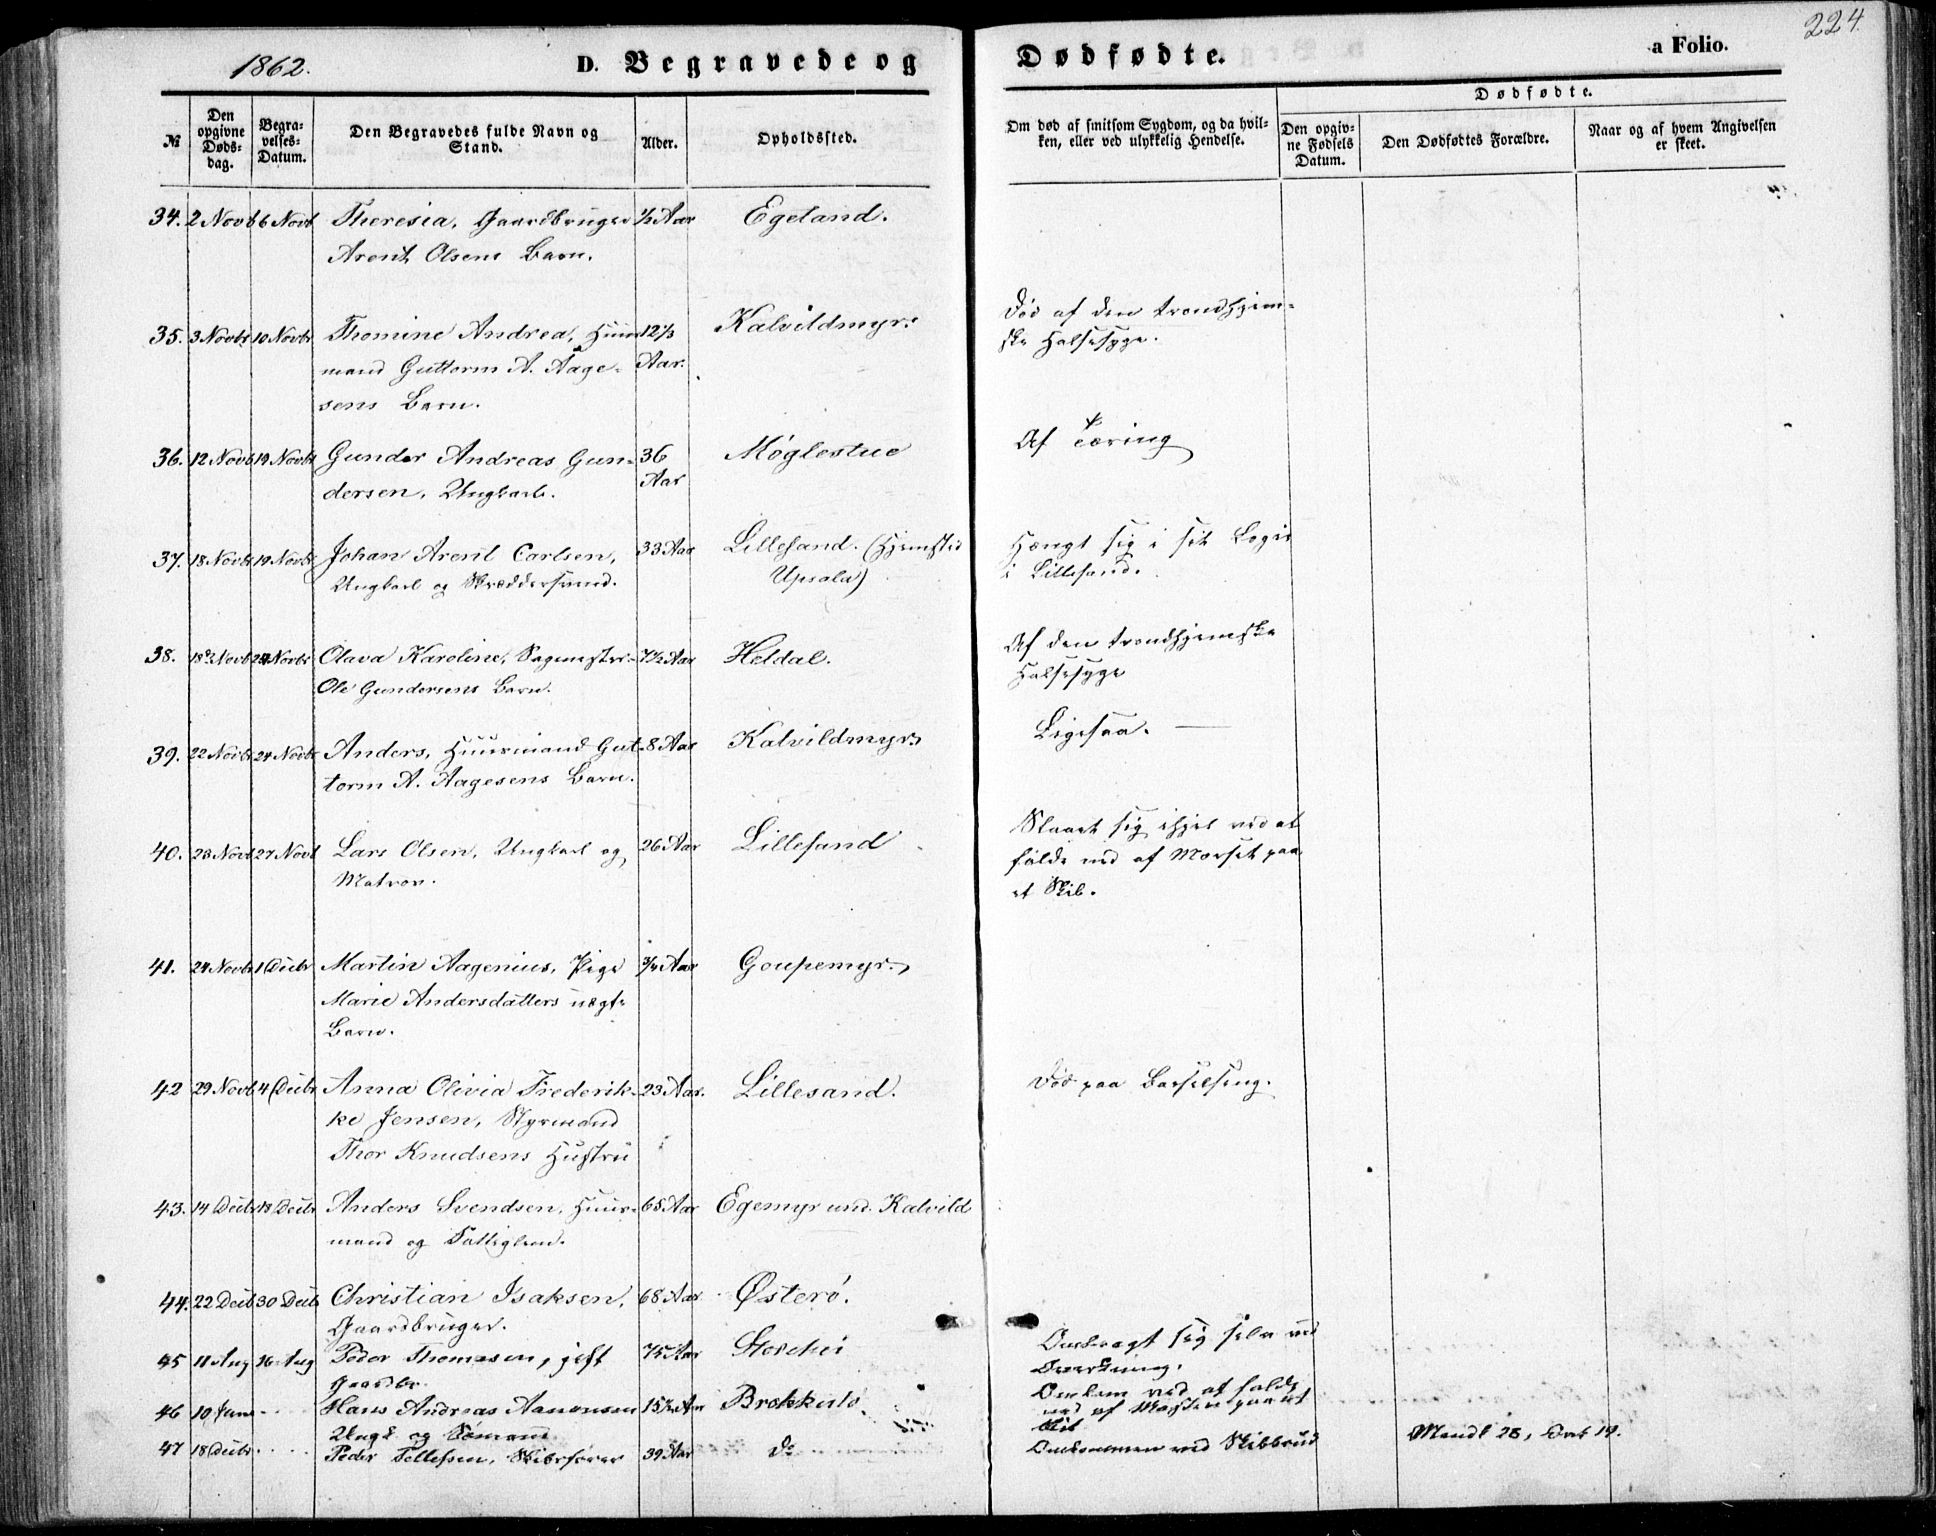 224.
1862.
D. Begravede og Dødfødte.
a Folio.
№
Den opgivne Døds-dag.
Begra-velses-Datum.
Den Begravedes fulde Navn og Stand.
Alder.
Opholdssted.
Om død af smitsom Sygdom, og da hvil-ken, eller ved ulykkelig Hendelse.
Dødfødte.
Den opgiv-ne Fødsels Datum.
Den Dødfødtes Forældre.
Naar og af hvem Angivelsen er skeet.
34. 2 Novb 6 Novb Theresia, Gaardbruger ½ Aar Egeland.
Arent Olsens Barn.
35. 3 Novbr 10 Novbr Thomine Andrea, Huus 12⅓ Kalvildmyr. Død af den trondhjem-
mand Guttorm A. Aage- Aar. ske Halssyge.
sens Barn.
36. 12 Novb 19 Novbr Gunder Andreas Gun- 36 Møglestue Af Tæring
dersen, Ungkarl. Aar
37. 18 Novbr 19 Novbr Johan Arent Carlsen, 33 Aar Lillesand. (Hjemsted Hængt sig i sit Logis
Ungkarl og Skræddersvend. Upsala) i Lillesand.
38. 18 Novb 24 Novbr Olava Karoline, Sagmester 7½ Aar Heldal. Af den trondhjemske
Ole Gundersens Barn. Halssyge
39. 22 Novbr 24 Novbr Anders, Huusmand Gut- 8 Aar Kalvildmyr Ligesaa.
torm A. Aagesens Barn.
40. 23 Novb 27 Novb Lars Olsen, Ungkarl og 26 Aar Lillesand Slaaet sig ihjel ved at
Matros. falde ned af Merset paa
et Skib.
41. 24 Novbr 1 Decbr Martin Aagenius, Pige ¾ Aar Goupemyr.
Marie Andersdatters uægte
Barn.
42 29 Novb 4 Decbr Anna Olivia Frederik- 23 Aar. Lillesand. Død paa Barselseng.
ke Jensen, Styrmand
Thor Knudsens Hustru
43. 14 Decbr 18 Decbr Anders Svendsen, Huus- 68 Aar Egemyr und. Kalvild
mand og Fattiglem.
44. 22 Decb 30 Decb Christian Isaksen, 68 Aar Østerø.
Gaardbruger.
45 11 Aug 16 Aug Peder Thomesen, gift 75 Aar Ombragt sig selv ved
Gaardbr.
46 10 Jan Hans Andreas Aanonsen 15½ Aar Brekkestø Omkom ved at falde
Ungk og Sømand ned af Masten paa et
Skib
47 18 Decbr Peder Tellefsen, Skibsfører 39 Aar do Omkommen ved Skibbrud Mandk 28, Qvk 19.